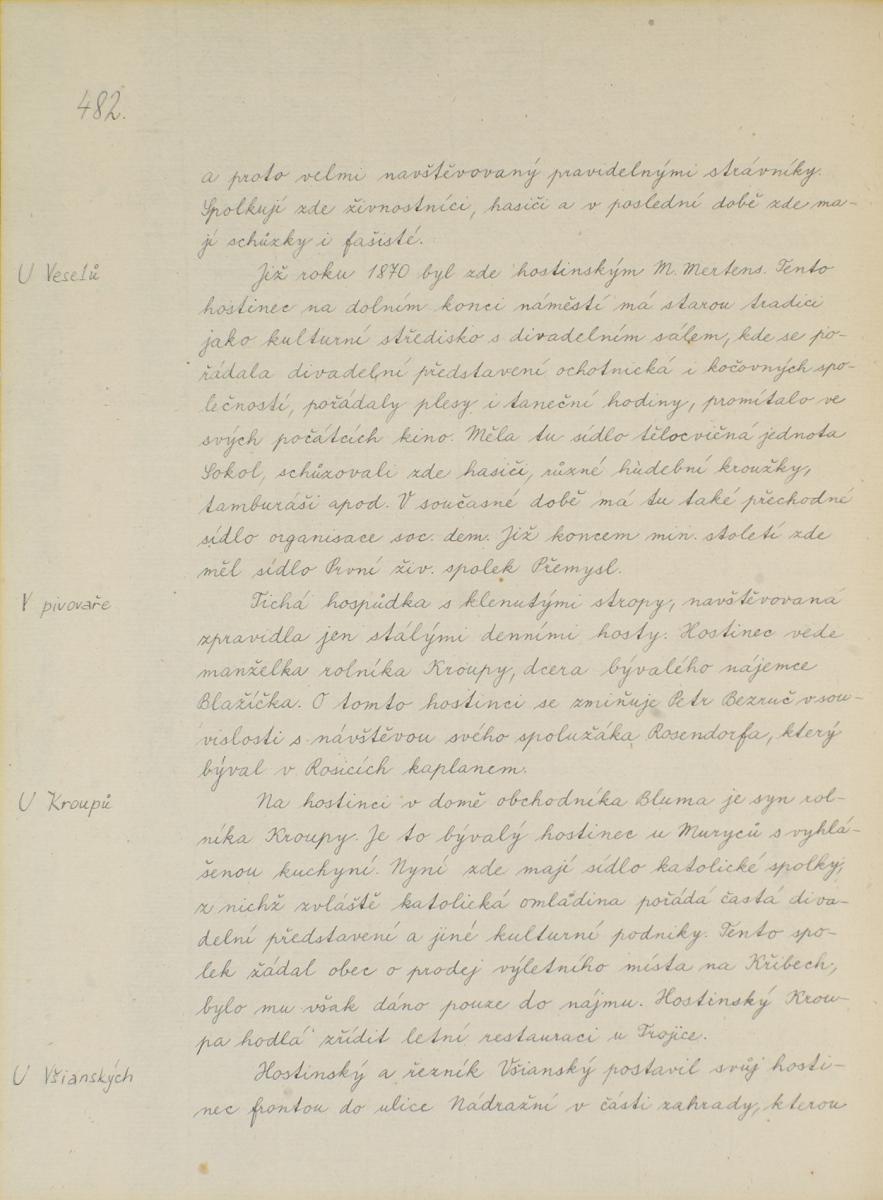 482.
a proto velmi navštěvovaný pravidelnými strávníky.
Spolkují zde živnostníci, hasiči a v poslední době zde ma-
jí schůzky i fašisté.
U Veselů
Již roku 1870 byl zde hostinským M. Mertens. Tento
hostinec na dolním konci náměstí má starou tradici
jako kulturní středisko s divadelním sálem, kde se po-
řádala divadelní představení ochotnická i kočovných spo-
lečností, pořádaly plesy i taneční hodiny, promítalo ve
svých počátcích kino. Měla tu sídlo tělocvičná jednota
Sokol, schůzovali zde hasiči, různé hudební kroužky,
tamburáši apod. V současné době má tu také přechodné
sídlo organisace soc. dem. Již koncem min. století zde
měl sídlo První živ. spolek Přemysl.
V pivovaře
Tichá hospůdka s klenutými stropy, navštěvovaná
zpravidla jen stálými denními hosty. Hostinec vede
manželka rolníka Kroupy, dcera bývalého nájemce
Blažíčka. O tomto hostinci se zmiňuje Petr Bezruč v sou-
vislosti s návštěvou svého spolužáka Rosendorfa, který
býval v Rosicích kaplanem.
U Kroupů
Na hostinci v domě obchodníka Bluma je syn rol-
níka Kroupy. Je to bývalý hostinec u Muryců s vyhlá-
šenou kuchyní. Nyní zde mají sídlo katolické spolky,
z nichž zvláště katolická omladina pořádá častá diva-
delní představení a jiné kulturní podniky. Tento spo-
lek žádal obec o prodej výletního místa na Křibech,
bylo mu však dáno pouze do nájmu. Hostinský Krou-
pa hodlá zřídit letní restauraci u Trojice.
U Všianských
Hostinský a řezník Všianský postavil svůj hosti-
nec frontou do ulice Nádražní v části zahrady, kterou